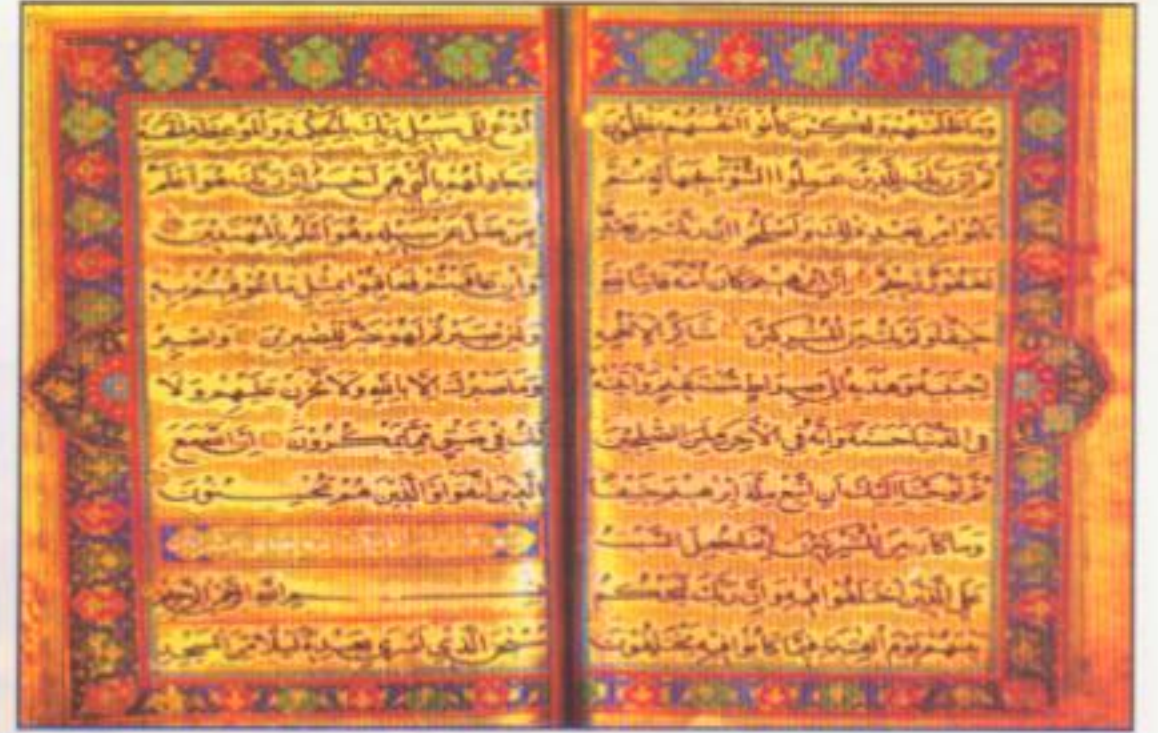 وما ظلمنهم ولكن كانوا انفسهم يظلمون
ثم ان ربك للذين عملوا السوء بجهالة ثم
تابوا من بعد ذلك واصلحوا ان ربك من بعدها
لغفور رحيم ان ابرهيم كان امة قانتا لله
حنيفا ولم يك من المشركين شاكرا لانعمه
اجتبه وهديه الى صراط مستقيم واتينه
في الدنيا حسنة وانه في الاخرة لمن الصلحين
ثم اوحينا اليك ان اتبع ملة ابرهيم حنيفا
وما كان من المشركين انما جعل السبت
على الذين اختلفوا فيه وان ربك ليحكم
بينهم يوم القيمة فيما كانوا فيه يختلفون
ادع الى سبيل ربك بالحكمة والموعظة الحسنة
وجادلهم بالتي هي احسن ان ربك هو اعلم
بمن ضل عن سبيله وهو اعلم بالمهتدين
وان عاقبتم فعاقبوا بمثل ما عوقبتم به
ولئن صبرتم لهو خير للصبرين واصبر
وما صبرك الا بالله ولا تحزن عليهم ولا
تك في ضيق مما يمكرون ان الله مع
الذين اتقوا والذين هم محسنون
بسم الله الرحمن الرحيم
سبحن الذي اسرى بعبده ليلا من المسجد